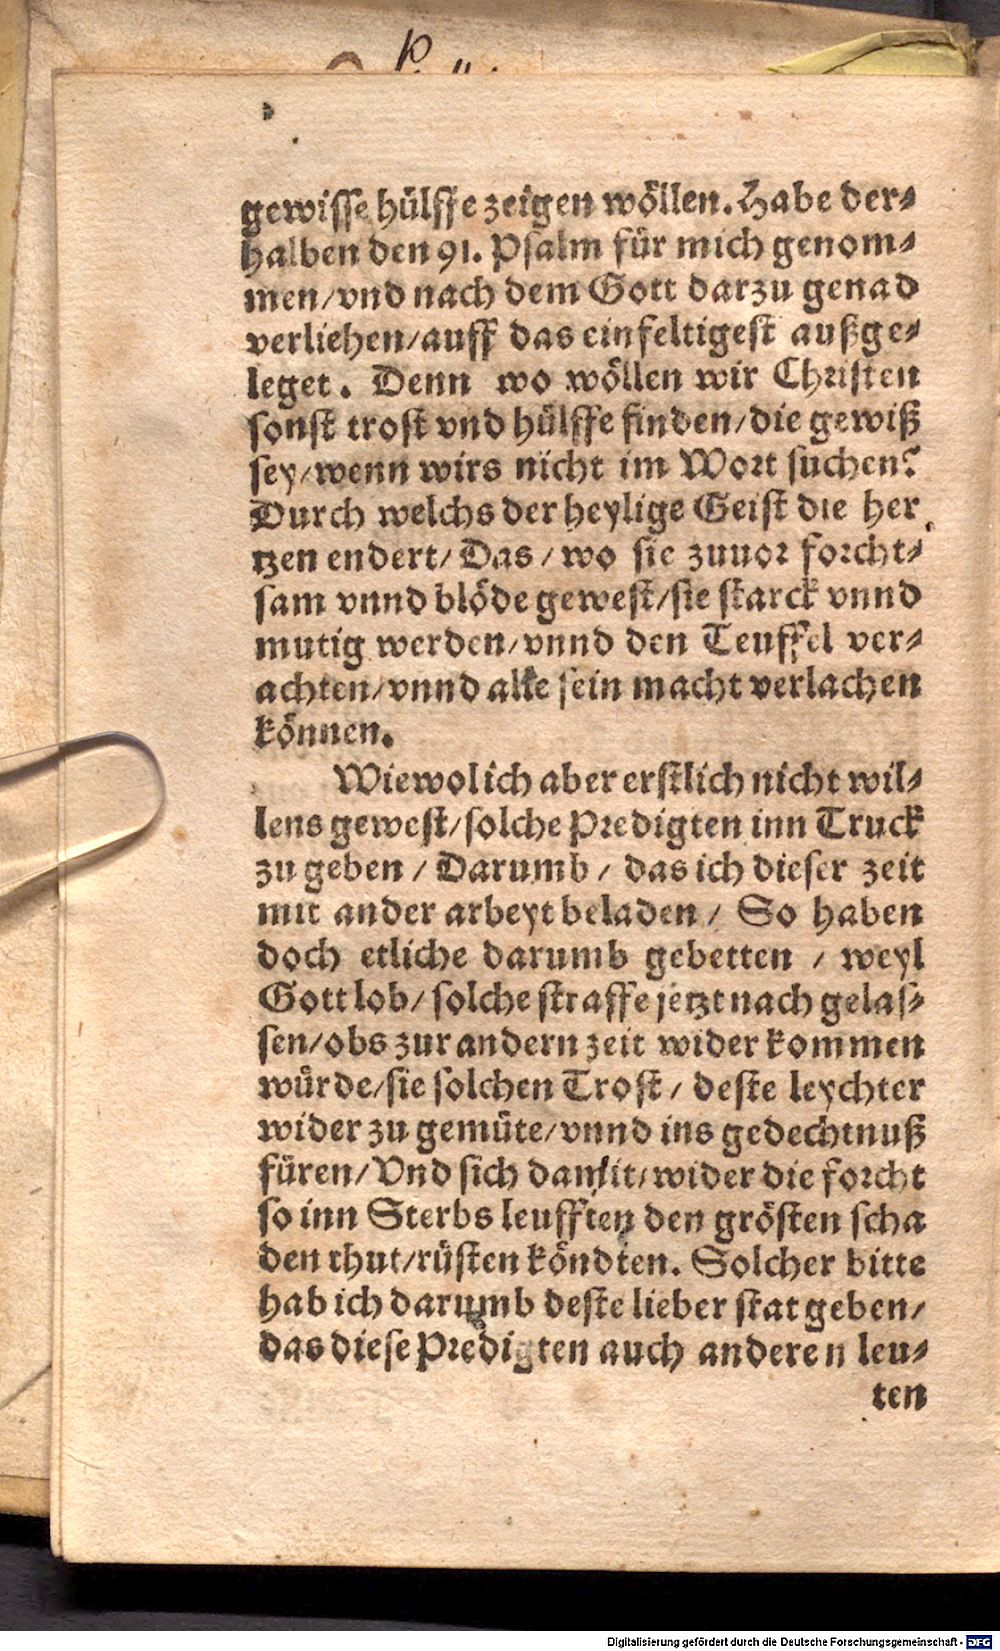 gewisse hülffe zeigen wöllen. Habe der⸗
halben den 91. Psalm für mich genom⸗
men/vnd nach dem Gott darzu genad
verliehen/auff das einfeltigest außge⸗
leget. Denn wo wöllen wir Christen
sonst trost vnd hülffe finden/die gewiß
sey/wenn wirs nicht im Wort suchen?
Durch welchs der heylige Geist die her
tzen endert/ Das/wo sie zuuor forcht⸗
sam vnnd blöde gewest/sie starck vnnd
mutig werden/vnnd den Teuffel ver⸗
achten/vnnd alle sein macht verlachen
können.
Wiewol ich aber erstlich nicht wil⸗
lens gewest/solche Predigten inn Truck
zu geben / Darumb/ das ich dieser zeit
mit ander arbeyt beladen/ So haben
doch etliche darumb gebetten / weyl
Gott lob/ solche straffe jetzt nach gelas⸗
sen/obs zur andern zeit wider kommen
würde/sie solchen Trost/ deste leychter
wider zu gemüte/vnnd ins gedechtnuß
füren/Vnd sich damit/wider die forcht
so inn Sterbs leufften den grösten scha
den thut/rüsten köndten. Solcher bitte
hab ich darumb deste lieber stat geben/
das diese Predigten auch anderen leu⸗
ten
Digitalisierung gefördert durch die Deutsche Forschungsgemeinschaft - DFG